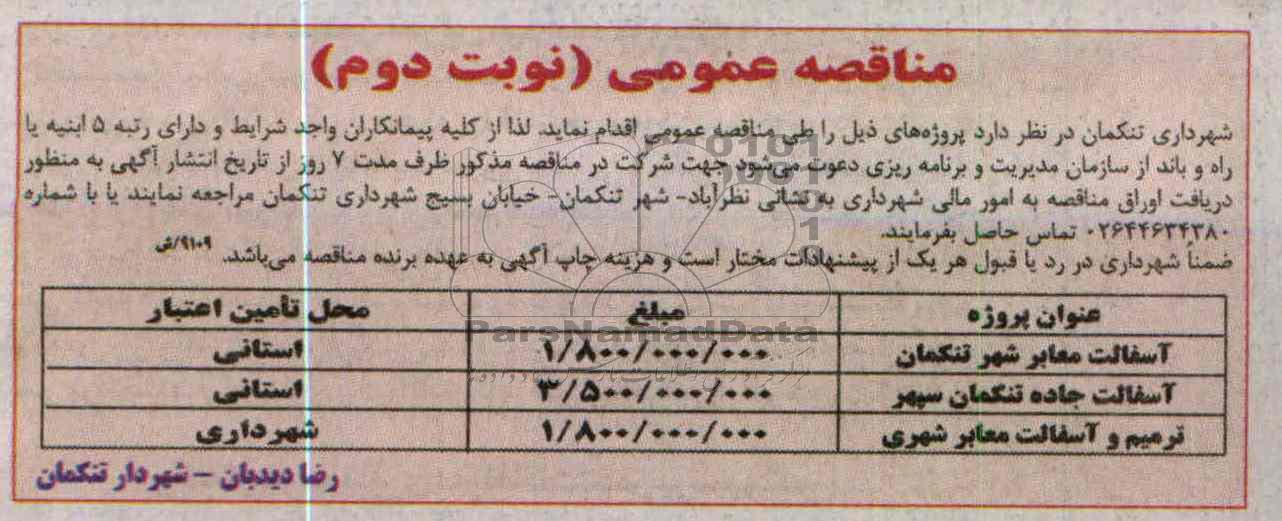 مناقصه عمومی (نوبت دوم)
شهرداری تنکمان در نظر دارد پروژه‌های ذیل را طی مناقصه عمومی اقدام نماید. لذا از کلیه پیمانکاران واجد شرایط و دارای رتبه ۵ ابنیه یا
راه و باند از سازمان مدیریت و برنامه ریزی دعوت می‌شود جهت شرکت در مناقصه مذکور ظرف مدت ۷ روز از تاریخ انتشار آگهی به منظور
دریافت اوراق مناقصه به امور مالی شهرداری به نشانی نظرآباد- شهر تنکمان- خیابان بسیج شهرداری تنکمان مراجعه نمایند یا با شماره
۰۲۶۴۴۶۳۴۳۸۰ تماس حاصل بفرمایند.
ضمناً شهرداری در رد یا قبول هر یک از پیشنهادات مختار است و هزینه چاپ آگهی به عهده برنده مناقصه می‌باشد. ۹۱۰۹/ش
عنوان پروژه مبلغ محل تأمین اعتبار
آسفالت معابر شهر تنکمان ۱/۸۰۰/۰۰۰/۰۰۰ استانی
آسفالت جاده تنکمان سپهر ۳/۵۰۰/۰۰۰/۰۰۰ استانی
ترمیم و آسفالت معابر شهری ۱/۸۰۰/۰۰۰/۰۰۰ شهرداری
رضا دیدبان – شهردار تنکمان
ParsNamadData